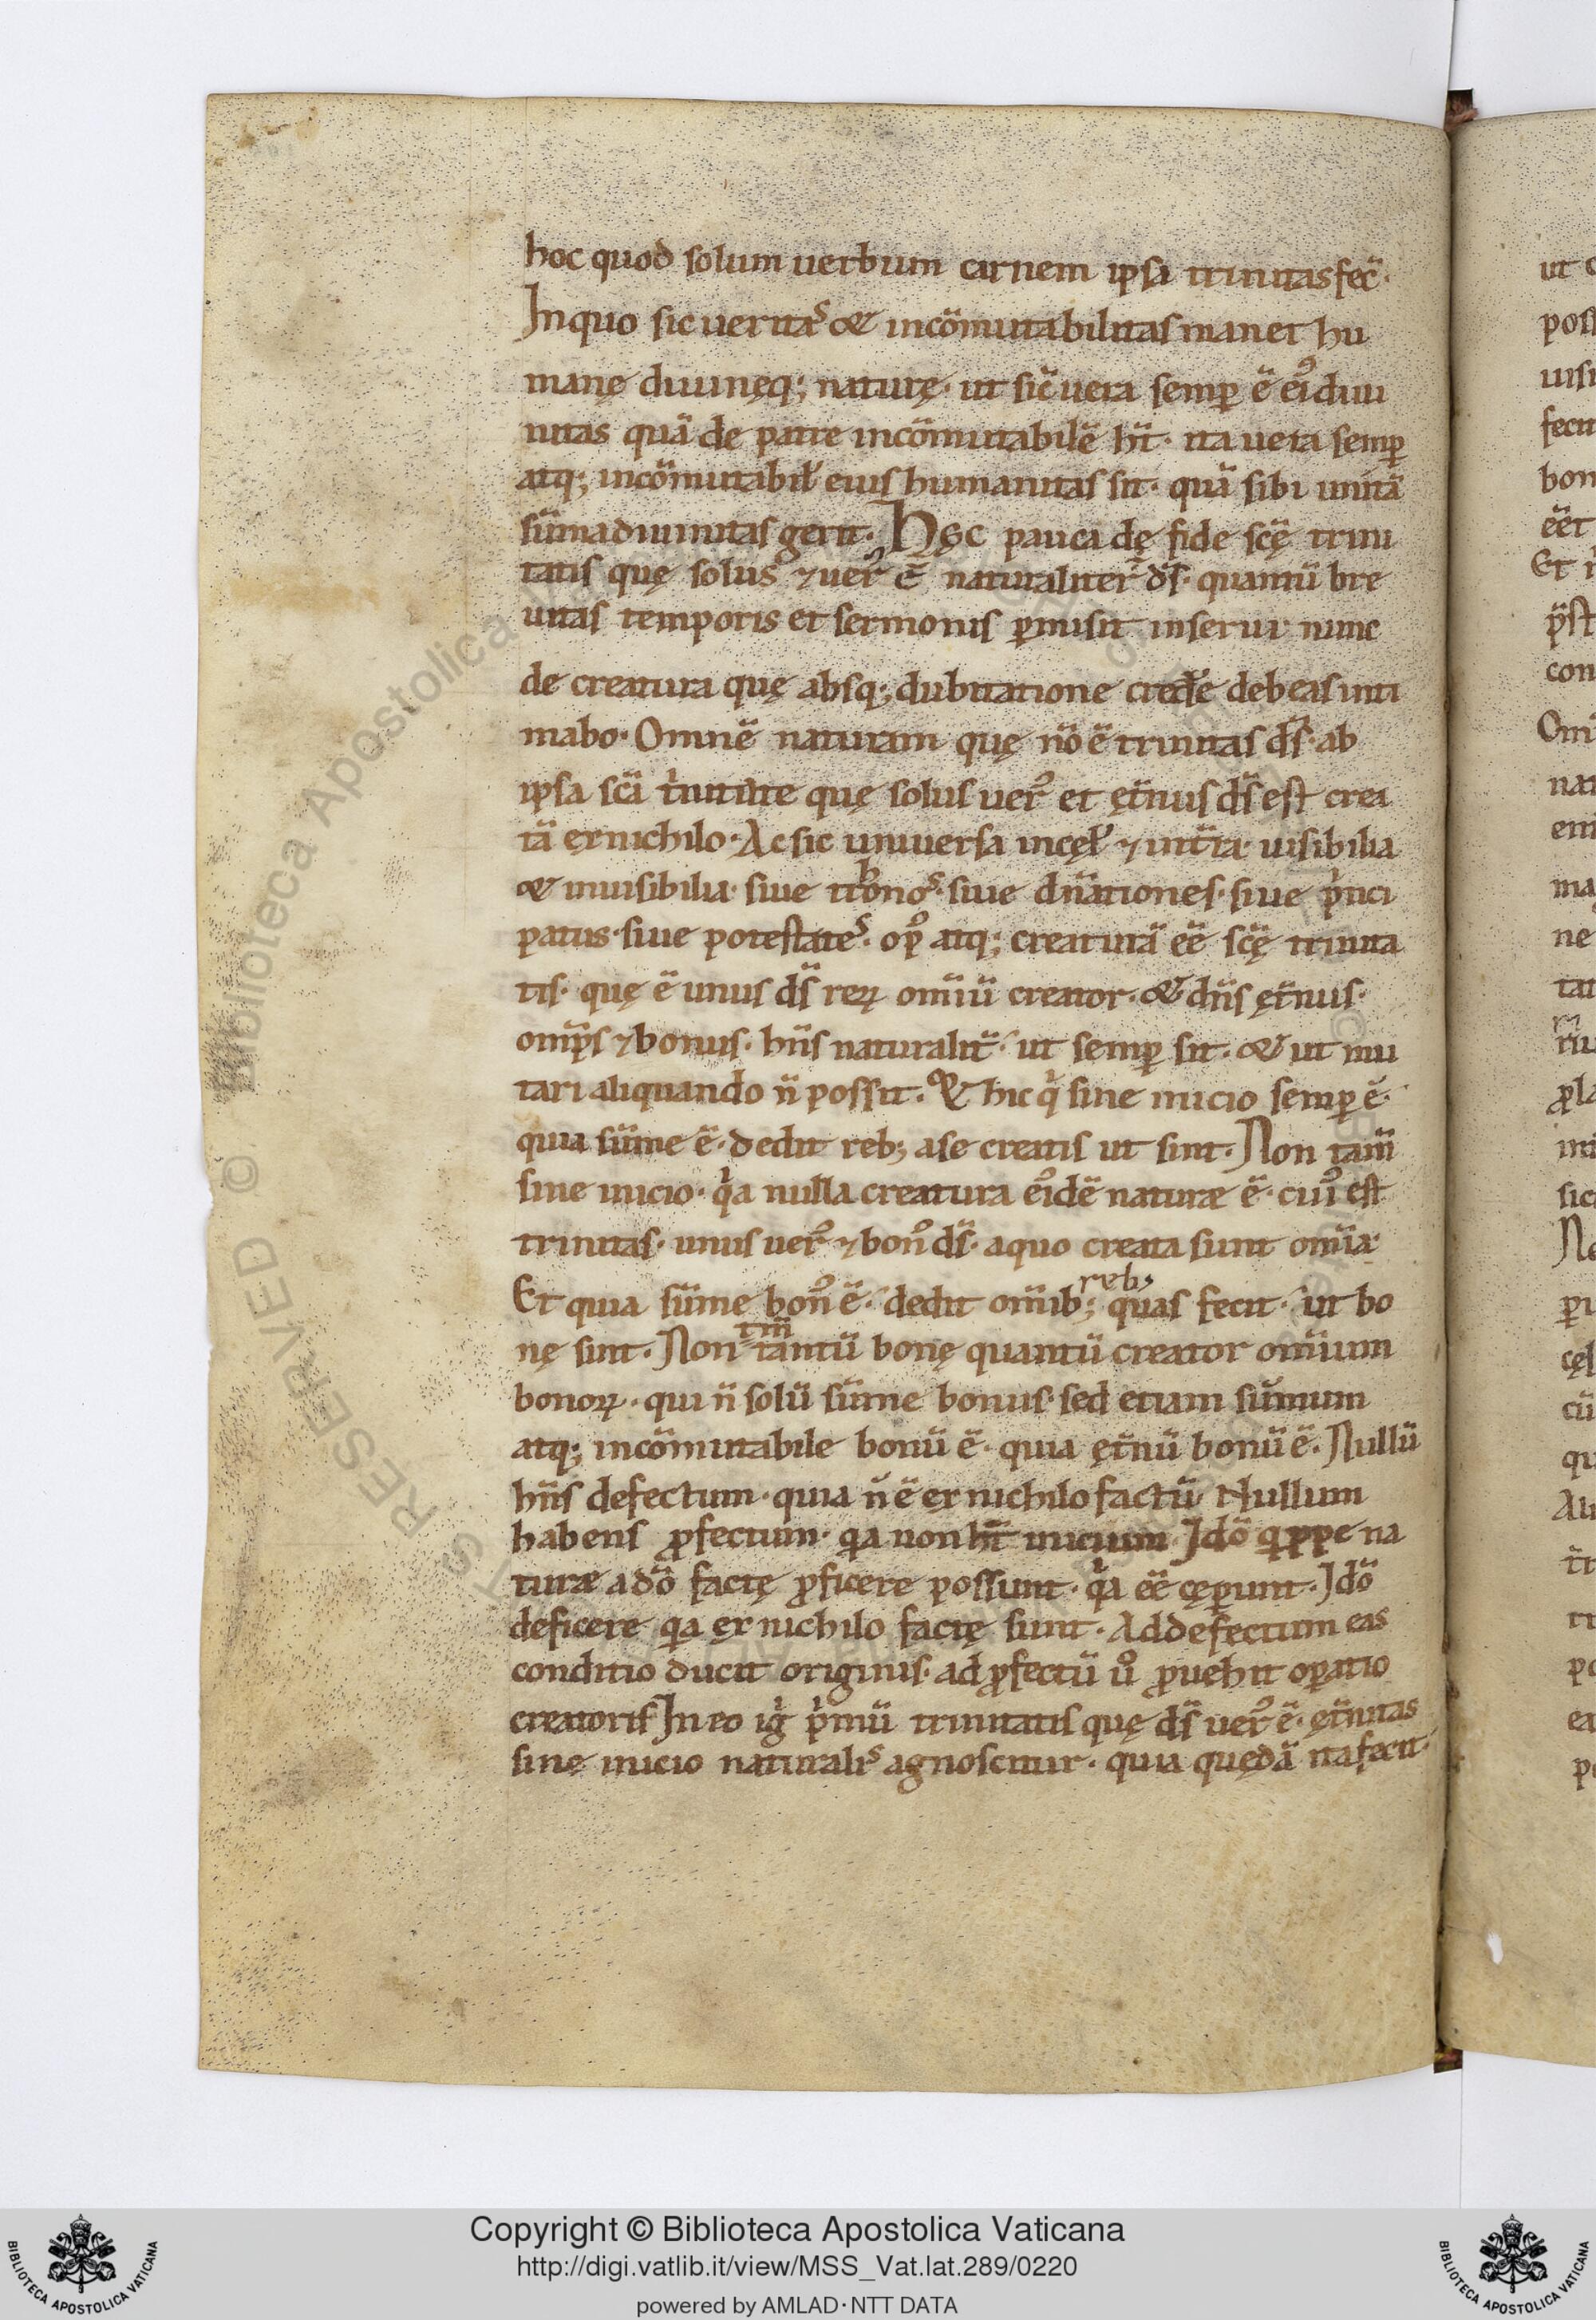 hoc quod solum uerbum carnem ipsa trinitas fec̄·
In quo sic ueritaˢ & incōmutabilitas manet hu
manę diuinęq; naturę· ut sic̄ uera semp̄ ē ei᷒ diui
nitas quā de patre incōmutabilē ht̄· ita uera semp̄
atq; incōmutabil̓ eius humanitas sit· quā sibi unitā
sūma diuinitas gerit· Hęc pauca dę fide scę̄ trini
tatis quę solus ⁊ uer᷒ ē naturaliter ds̄· quantū bre
uitas temporis et sermonis p̄misit inserui· nunc
de creatura quę absq; dubitatione cred̄e debeas inti
mabo· Omnē naturam quę nō ē trinitas ds̄· ab
ipsa scā tⁱnitate quę solus uer᷒ et ęt̄nus ds̄ est crea
tā ex nichilo· Ac sic uniuersa in cęl̓ ⁊ in t̄ra· uisibilia
& inuisibilia· siue thronoˢ· siue dn̄ationes· siue pⁱnci
patus· siue potestateˢ· op᷒ atq; creaturā eē scę̄ trinita
tis· quę ē unus ds̄ reꝝ om̄iū creator· & dn̄s ęt̄nus·
omp̄s ⁊ bonus· hn̄s naturalit̄· ut semp̄ sit· & ut mu
tari aliquando n̄ possit· & hic qⁱ sine inicio semp̄ ē·
quia sūme ē· dedit reb; a se creatis ut sint· Non tam̄
sine inicio· qⁱa nulla creatura ei᷒dē naturæ ē· cui᷒ est
trinitas· unus uer᷒ ⁊ bon᷒ ds̄· a quo creata sunt om̄ia·
reb;
Et quia sūme bon᷒ ē· dedit om̄ib; quas fecit· ut bo
tm̄
nę sint· Non tantū bonę quantū creator om̄ium
bonoꝝ· qui n̄ solū sūme bonus· sed etiam sūmum
atq; incōmutabile bonū ē· quia ęt̄nū bonū ē· Nullū
hn̄s defectum· quia n̄ ē ex nichilo factū· Nullum
habens ꝓfectum· qⁱa non ht̄ inicium· Idō qⁱppe na
turæ a dō factę ꝓficere possunt· qⁱa eē cęp̄unt· Idō
deficere qⁱa ex nichilo factę sunt· Ad defectum eas
conditio ducit originis· ad ꝓfectū u᷒ ꝓuehit oꝑatio
creatoris· In eo igⁱ pⁱmū trinitatis quę ds̄ uer᷒ ē· ęt̄nitas
sine inicio naturaliˢ agnoscitur· quia quędā ita fecit·
Copyright © Biblioteca Apostolica Vaticana
http://digi.vatlib.it/view/MSS_Vat.lat.289/0220
powered by AMLAD·NTT DATA